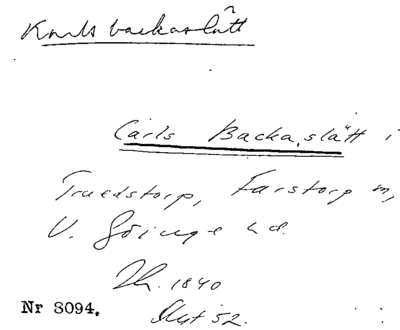 Karlsbackaslätt
Carls Backa,slätt i
Truedstorp, Farstorp sn,
V. Göinge hd.
Th. 1840
Nr 8094.